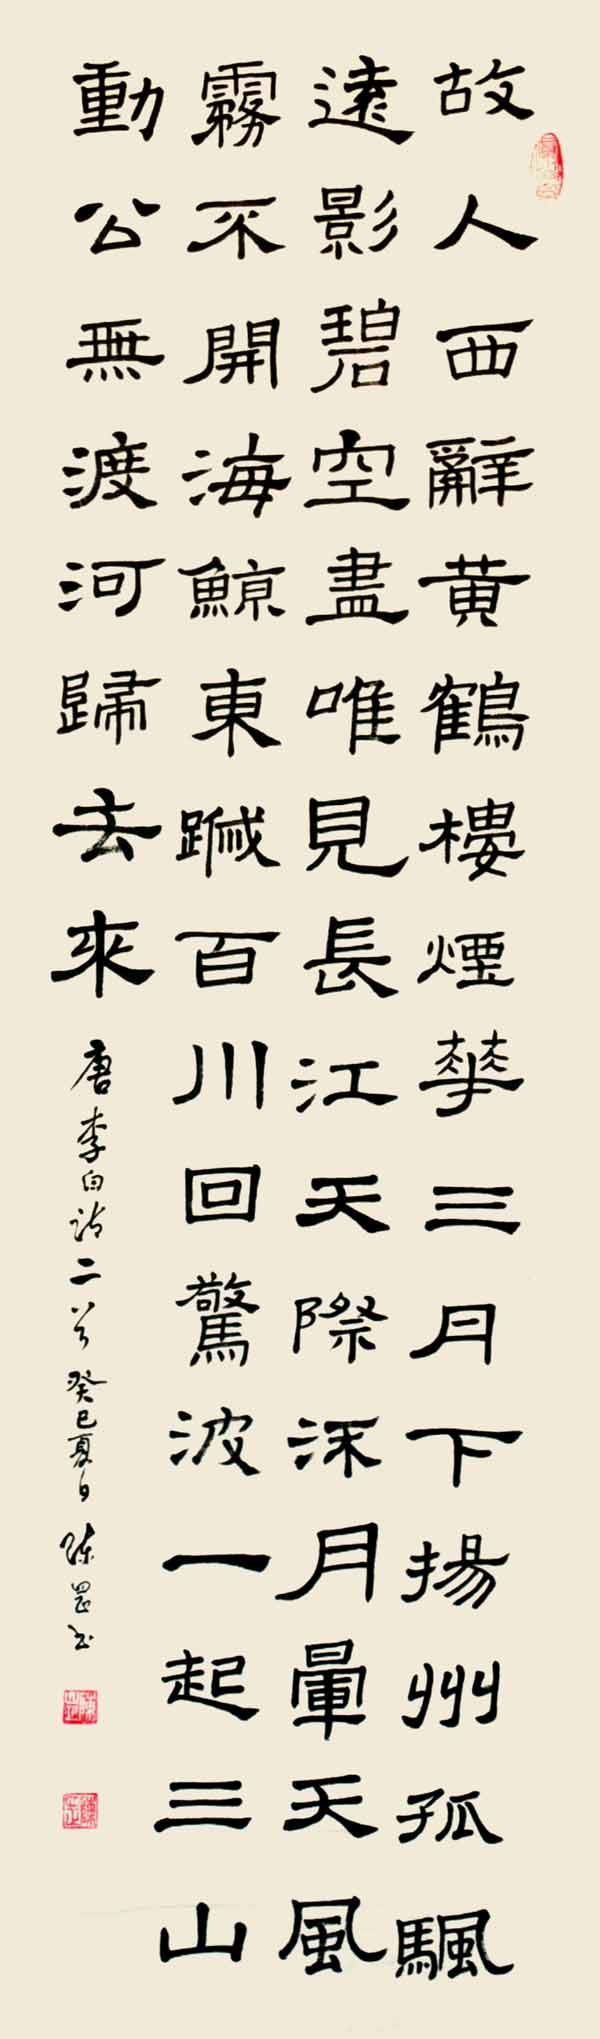 故人西辭黄鶴樓煙華三月下揚州孤颿
遠影碧空盡唯見長江天際流月暈天風
霧不開海鯨東䠞百川回驚波一起三山
動公無渡河歸去來
唐李白詩二首癸巳夏日陳罡书